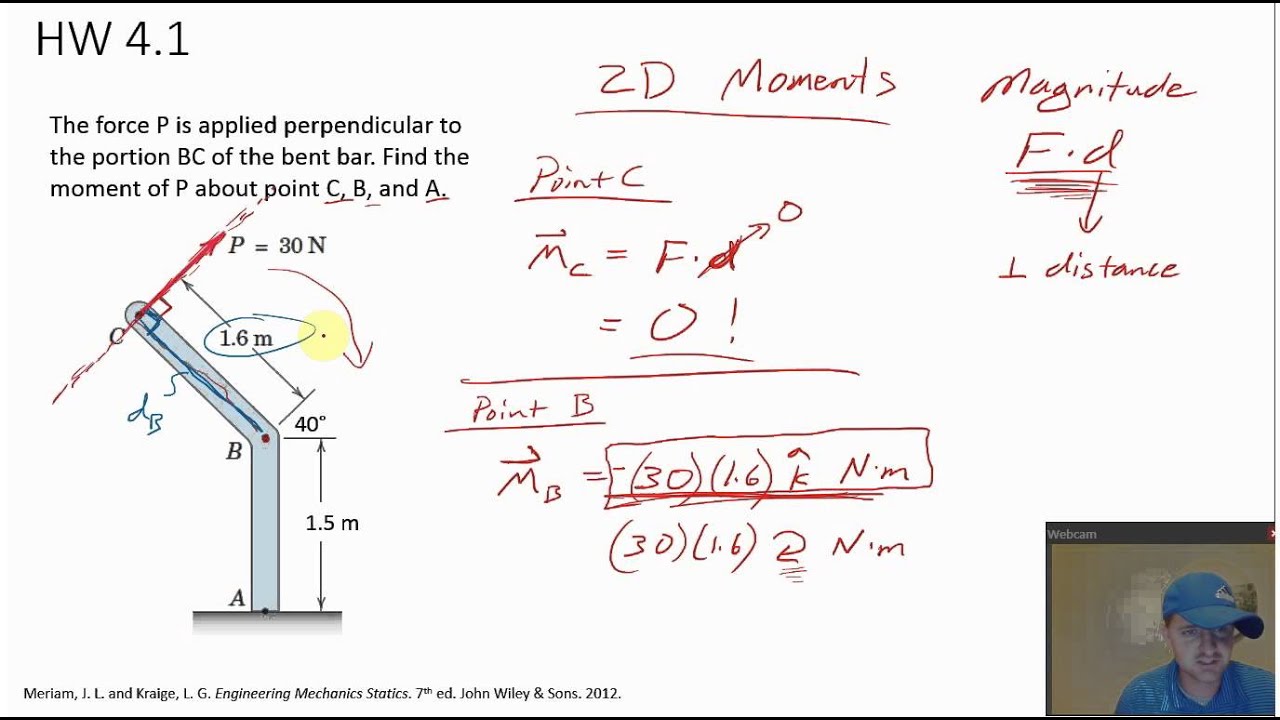 HW 4.1
The force P is applied perpendicular to
the portion BC of the bent bar. Find the
moment of P about point C, B, and A.
P = 30 N
C
1.6 m
d_B
40°
B
1.5 m
A
2D Moments
Point C
M⃗_C = F·d → 0
= 0 !
Point B
M⃗_B = -(30)(1.6) k̂ N·m
(30)(1.6) ⤸ N·m
Magnitude
F·d
⊥ distance
Webcam
Meriam, J. L. and Kraige, L. G. Engineering Mechanics Statics. 7th ed. John Wiley & Sons. 2012.